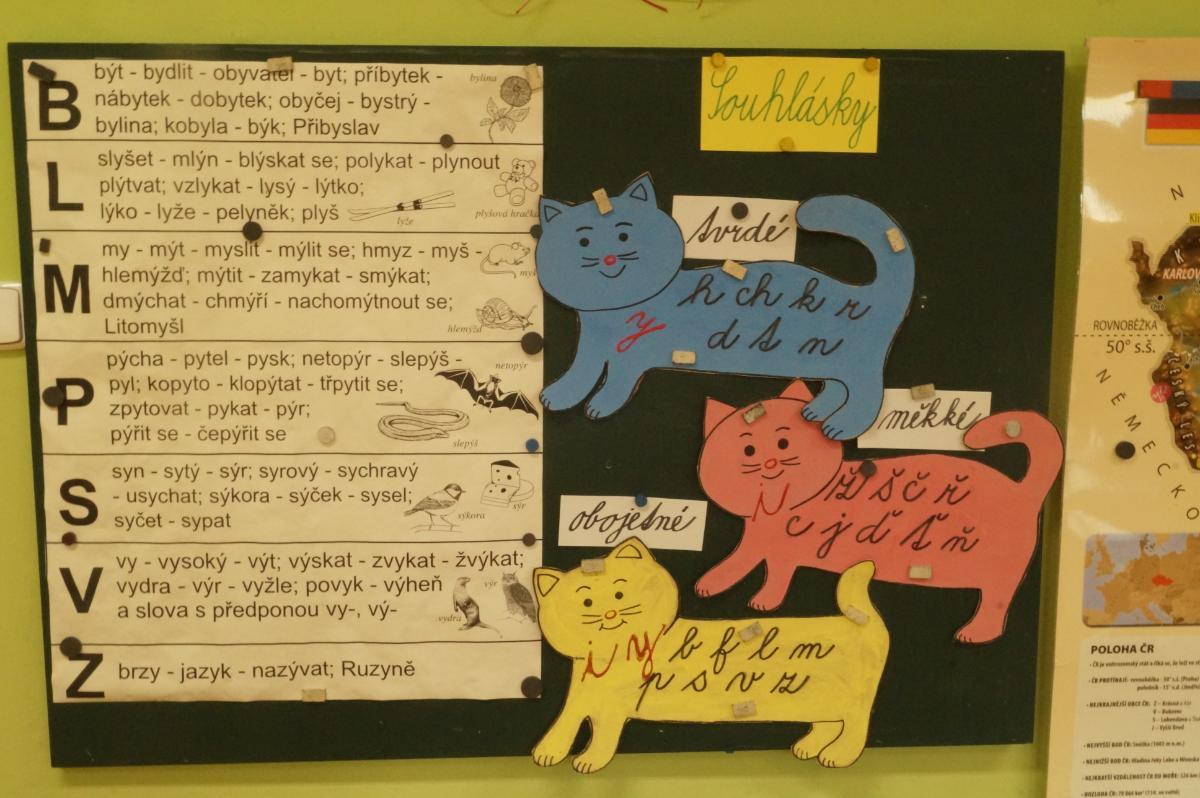 B
být - bydlit - obyvatel - byt; příbytek -
nábytek - dobytek; obyčej - bystrý -
bylina; kobyla - býk; Přibyslav
bylina
L
slyšet - mlýn - blýskat se; polykat - plynout
plýtvat; vzlykat - lysý - lýtko;
lýko - lyže - pelyněk; plyš
lyže
plyšová hračka
M
my - mýt - myslit - mýlit se; hmyz - myš -
hlemýžď; mýtit - zamykat - smýkat;
dmýchat - chmýří - nachomýtnout se;
Litomyšl
myš
hlemýžď
P
pýcha - pytel - pysk; netopýr - slepýš -
pyl; kopyto - klopýtat - třpytit se;
zpytovat - pykat - pýr;
pýřit se - čepýřit se
netopýr
slepýš
S
syn - sytý - sýr; syrový - sychravý
- usychat; sýkora - sýček - sysel;
syčet - sypat
sýkora
sýr
V
vy - vysoký - výt; výskat - zvykat - žvýkat;
vydra - výr - vyžle; povyk - výheň
a slova s předponou vy-, vý-
výr
vydra
Z
brzy - jazyk - nazývat; Ruzyně
Souhlásky
tvrdé
h ch k r
y d t n
měkké
ž š č ř
i c j ď ť ň
obojetné
i y b f l m
p s v z
N
K
KARLOV
ROVNOBĚŽKA
50° s.š.
NĚMECKO
POLOHA ČR